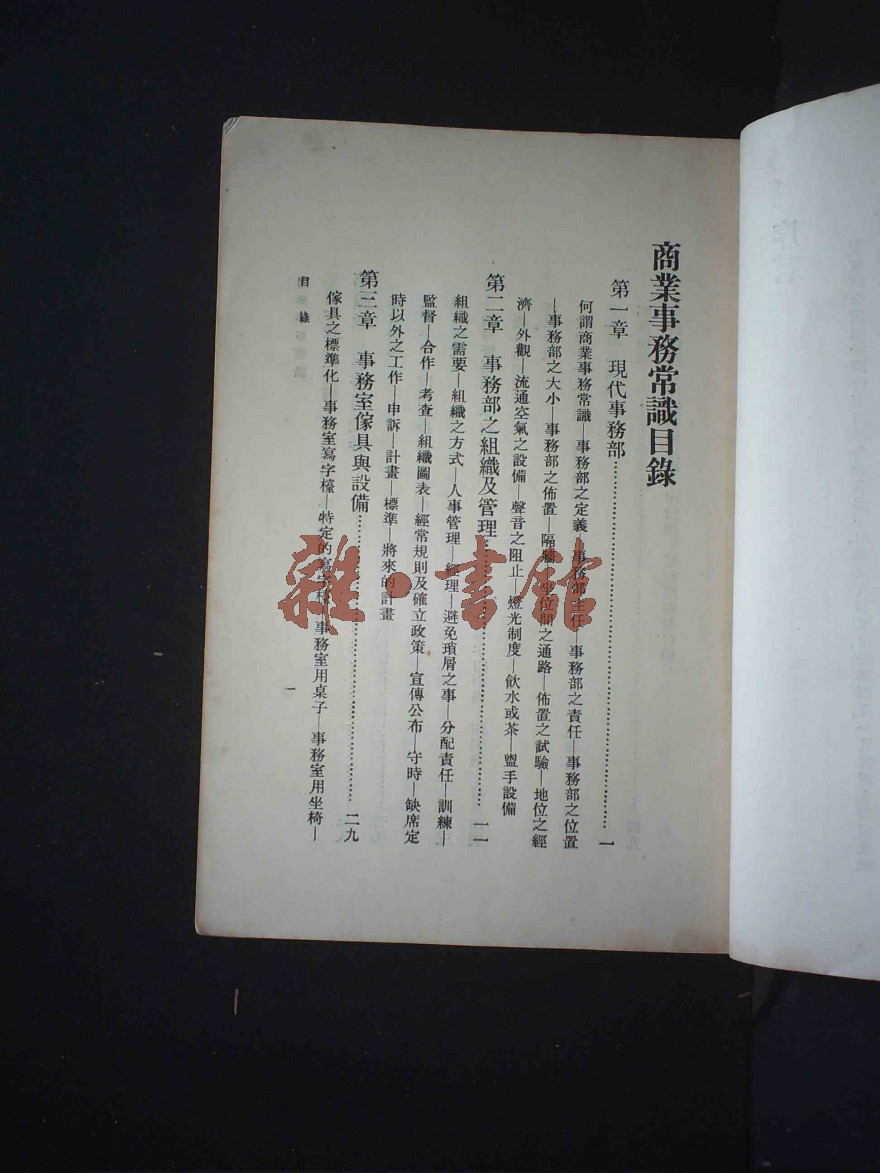 商業事務常識目錄
第一章　現代事務部……………………………一
何謂商業事務常識—事務部之定義—事務部主任—事務部之責任—事務部之位置
—事務部之大小—事務部之佈置—隔牆—坐位間之通路—佈置之試驗—地位之經
濟—外觀—流通空氣之設備—聲音之阻止—燈光制度—飲水或茶—盥手設備
第二章　事務部之組織及管理……………………………一一
組織之需要—組織之方式—人事管理—經理—避免瑣屑之事—分配責任—訓練—
監督—合作—考查—組織圖表—經常規則及確立政策—宣傳公布—守時—缺席定
時以外之工作—申訴—計畫—標準—將來的計畫
第三章　事務室傢具與設備……………………………二九
傢具之標準化—事務室寫字檯—特定的寫字檯—事務室用桌子—事務室用坐椅—
目錄
一
雜·書館